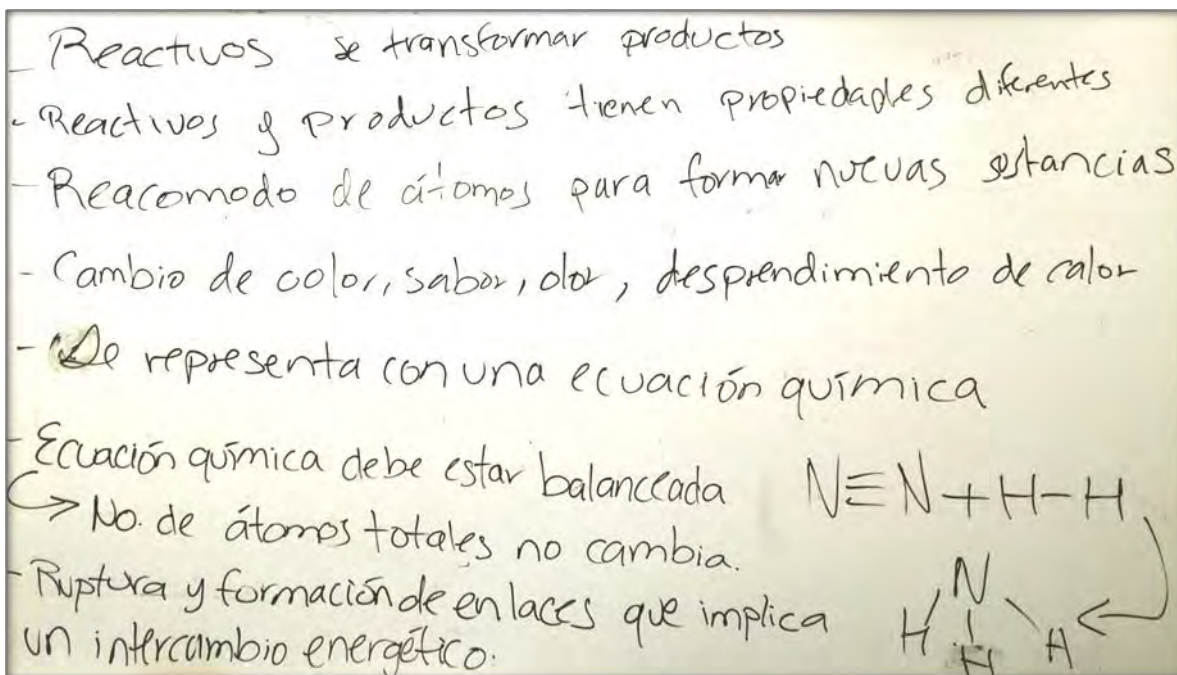 - Reactivos se transformar productos
- Reactivos y productos tienen propiedades diferentes
- Reacomodo de átomos para formar nuevas sustancias
- Cambio de color, sabor, olor, desprendimiento de calor
- Se representa con una ecuación química
- Ecuación química debe estar balanceada
→ No. de átomos totales no cambia.
- Ruptura y formación de enlaces que implica
un intercambio energético.
N≡N + H-H
N
H H H